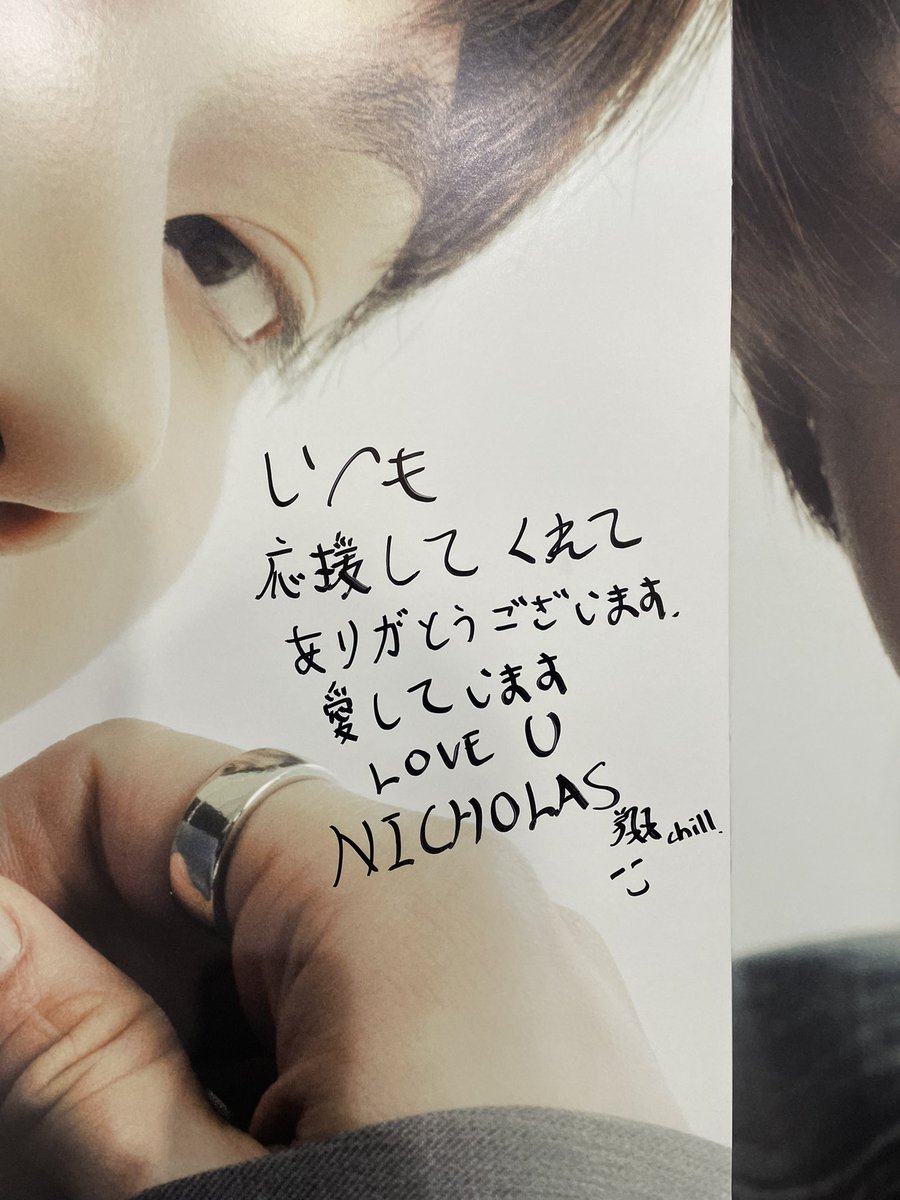 いつも
応援してくれて
ありがとうございます.
愛しています
LOVE U
NICHOLAS
chill.